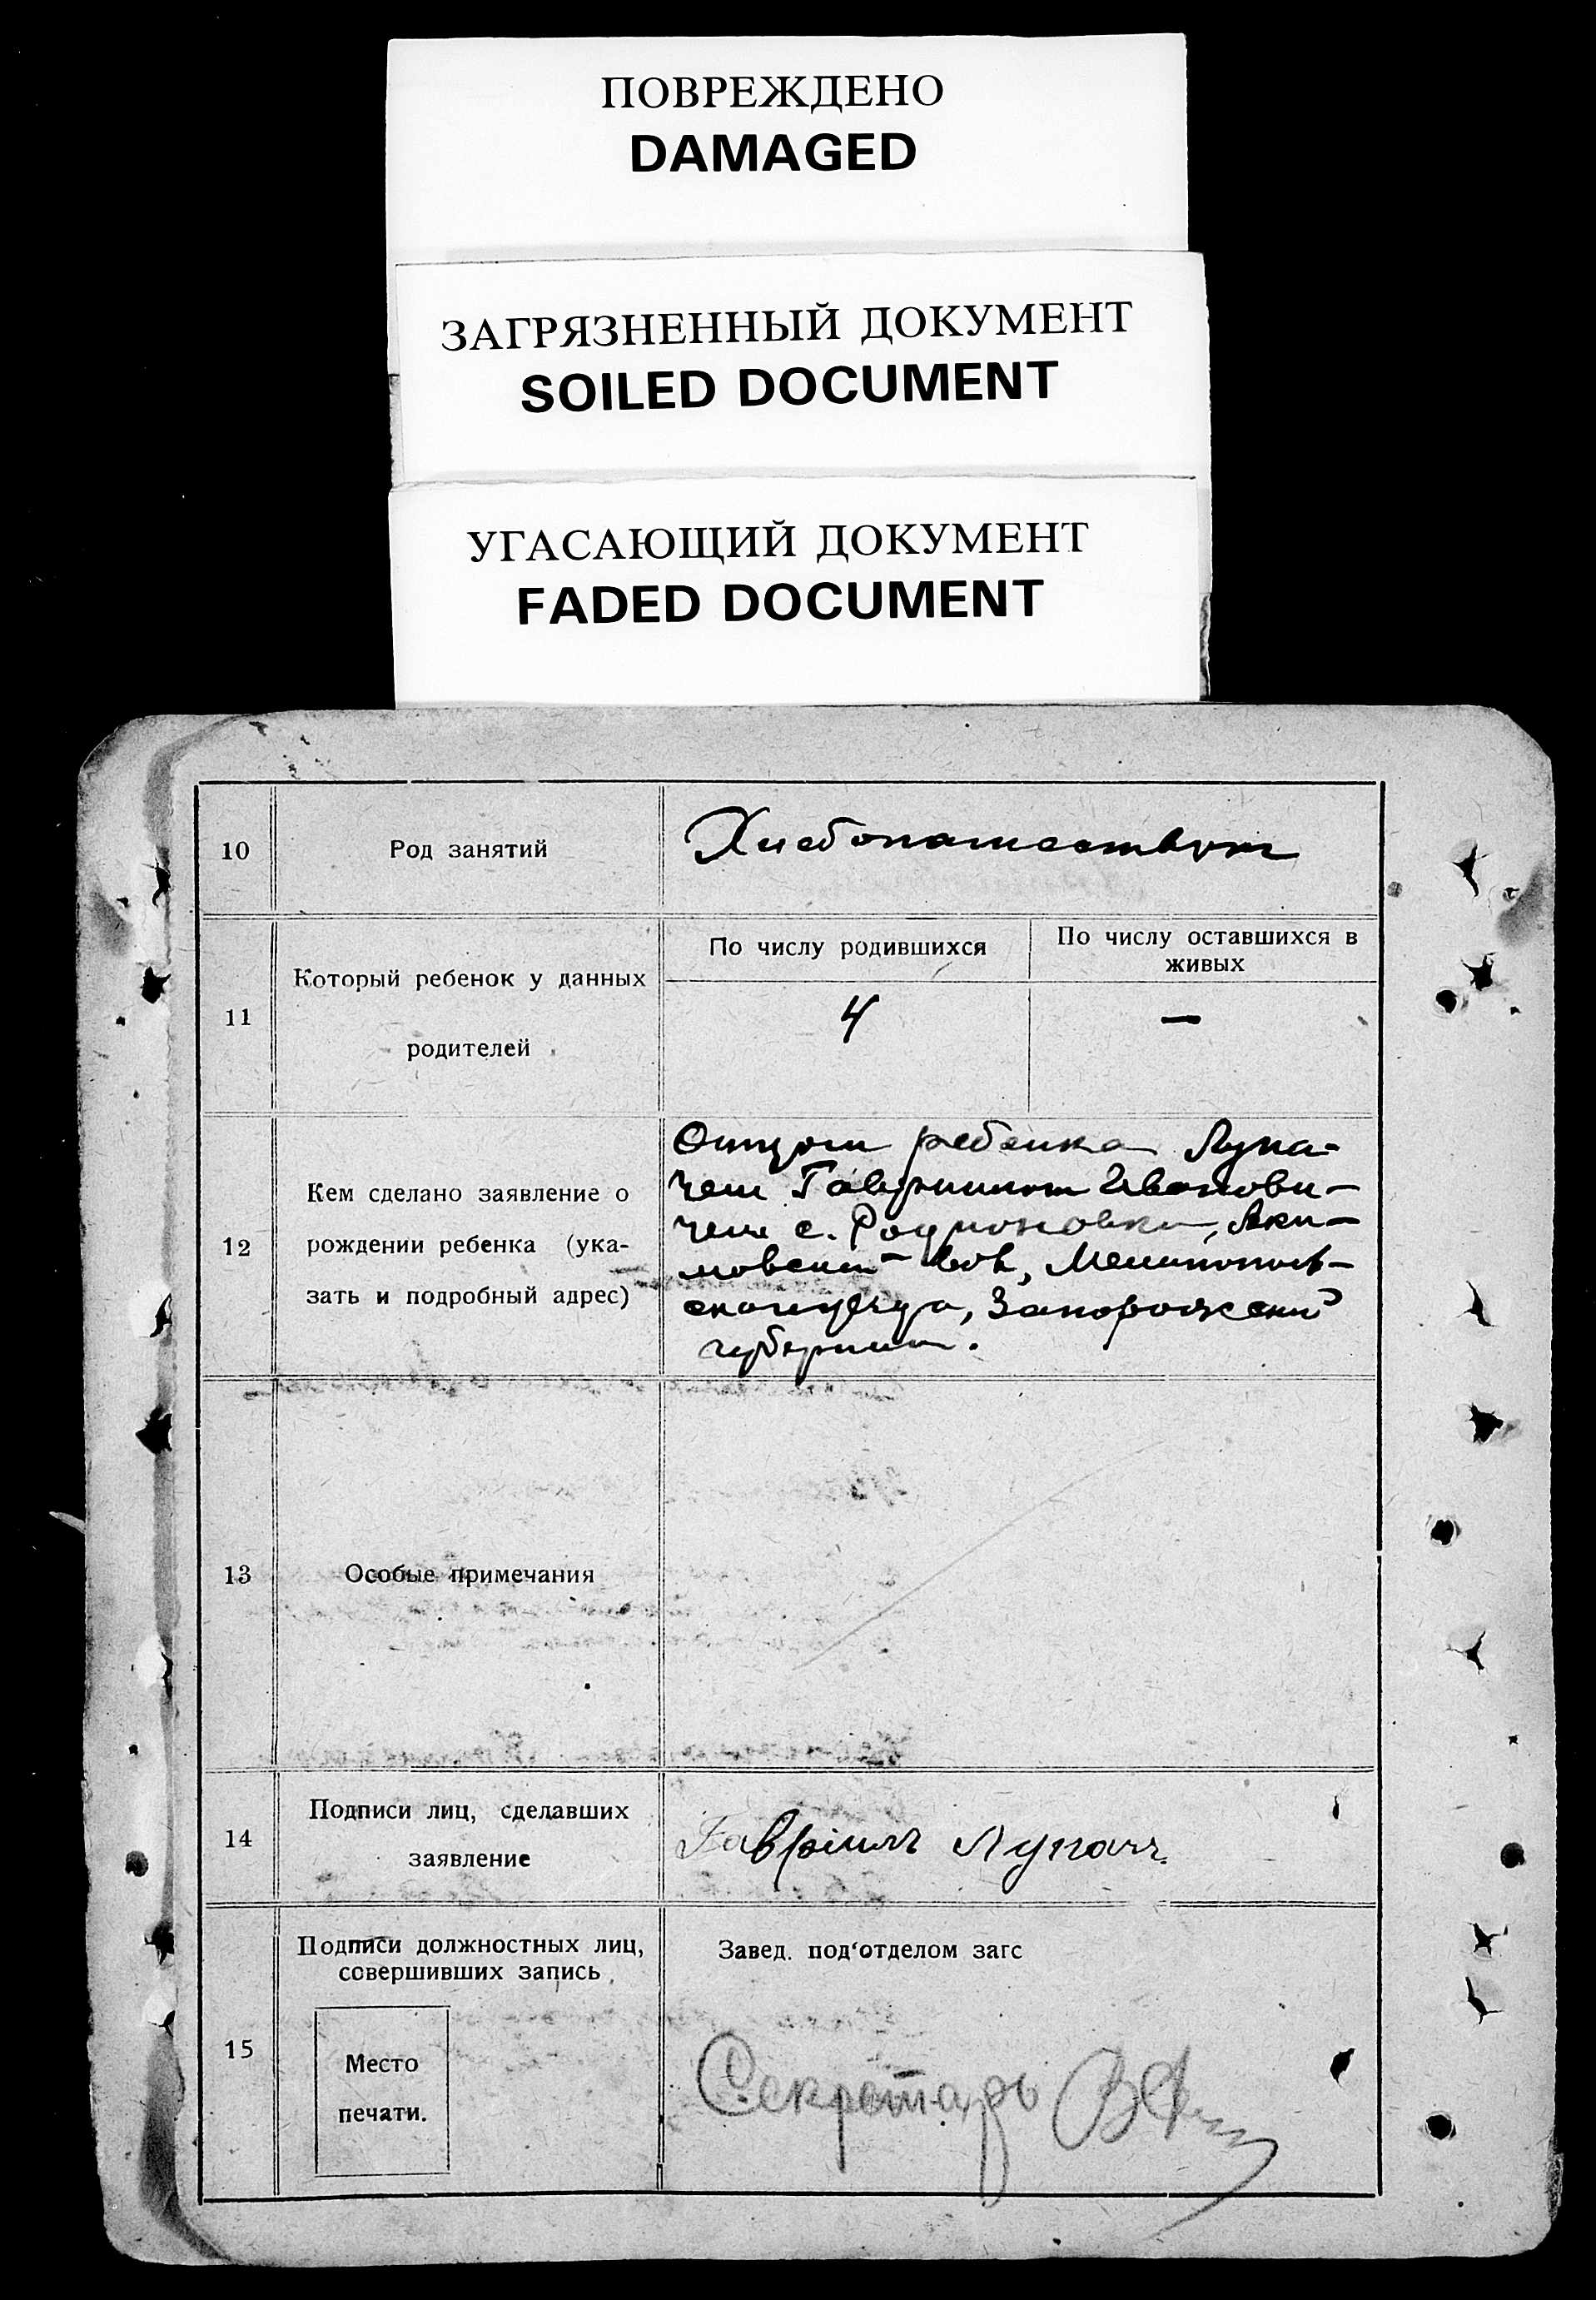 ПОВРЕЖДЕНО
DAMAGED
ЗАГРЯЗНЕННЫЙ ДОКУМЕНТ
SOILED DOCUMENT
УГАСАЮЩИЙ ДОКУМЕНТ
FADED DOCUMENT
10
Род занятий
Хлебопашеством
11
Который ребенок у данных
родителей
По числу родившихся
По числу оставшихся в
живых
4
—
12
Кем сделано заявление о
рождении ребенка (ука-
зать и подробный адрес)
Отцом ребенка Лупа-
чем Гавриилом Иванови-
чем с. Родионовки, Аки-
мовской вол, Мелитополь-
ского уезда, Запорожской
губернии.
13
Особые примечания
14
Подписи лиц, сделавших
заявление
Гавріилъ Лупачъ.
15
Подписи должностных лиц,
совершивших запись
Место
печати.
Завед. под'отделом загс
Секретарь